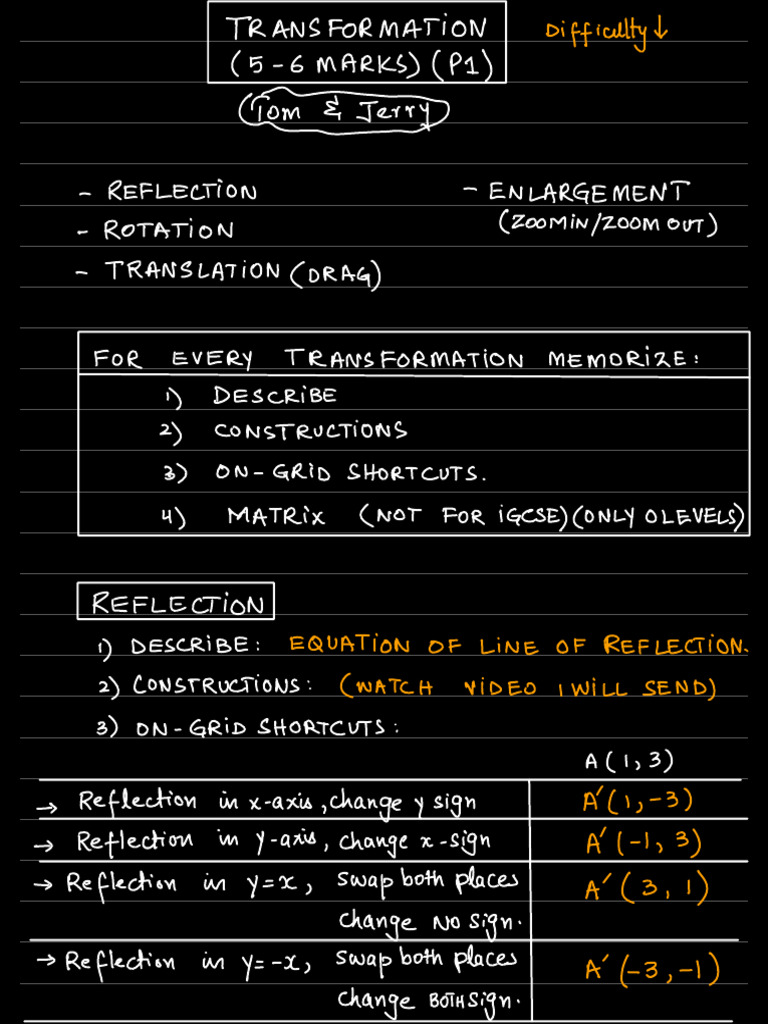 TRANSFORMATION
Difficulty ↓
(5-6 MARKS) (P1)
Tom & Jerry
- REFLECTION
- ENLARGEMENT
(ZOOMIN/ZOOM OUT)
- ROTATION
- TRANSLATION (DRAG)
FOR EVERY TRANSFORMATION MEMORIZE:
1) DESCRIBE
2) CONSTRUCTIONS
3) ON-GRID SHORTCUTS.
4) MATRIX (NOT FOR IGCSE)(ONLY OLEVELS)
REFLECTION
1) DESCRIBE: EQUATION OF LINE OF REFLECTION.
2) CONSTRUCTIONS: (WATCH VIDEO I WILL SEND)
3) ON-GRID SHORTCUTS:
A(1,3)
→ Reflection in x-axis, change y sign A'(1,-3)
→ Reflection in y-axis, change x-sign A'(-1, 3)
→ Reflection in y=x, swap both places A'(3, 1)
change NO sign.
→ Reflection in y=-x, swap both places A'(-3,-1)
change BOTH sign.